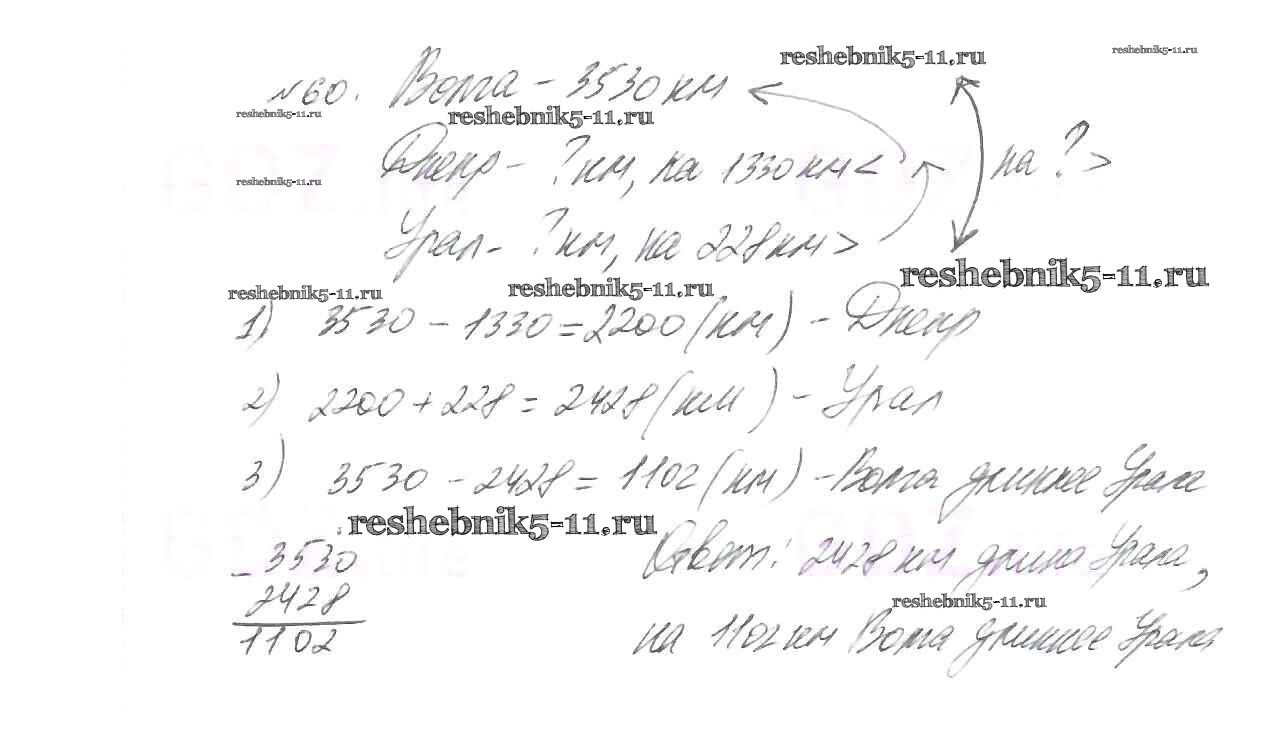 reshebnik5-11.ru
reshebnik5-11.ru
№60. Волга - 3530 км
reshebnik5-11.ru
reshebnik5-11.ru
Днепр - ? км, на 1330 км < на ? >
reshebnik5-11.ru
Урал - ? км, на 228 км >
reshebnik5-11.ru
reshebnik5-11.ru
reshebnik5-11.ru
1) 3530 - 1330 = 2200 (км) - Днепр
2) 2200 + 228 = 2428 (км) - Урал
3) 3530 - 2428 = 1102 (км) - Волга длиннее Урала
reshebnik5-11.ru
- 3530
2428
1102
Ответ: 2428 км длина Урала,
reshebnik5-11.ru
на 1102 км Волга длиннее Урала